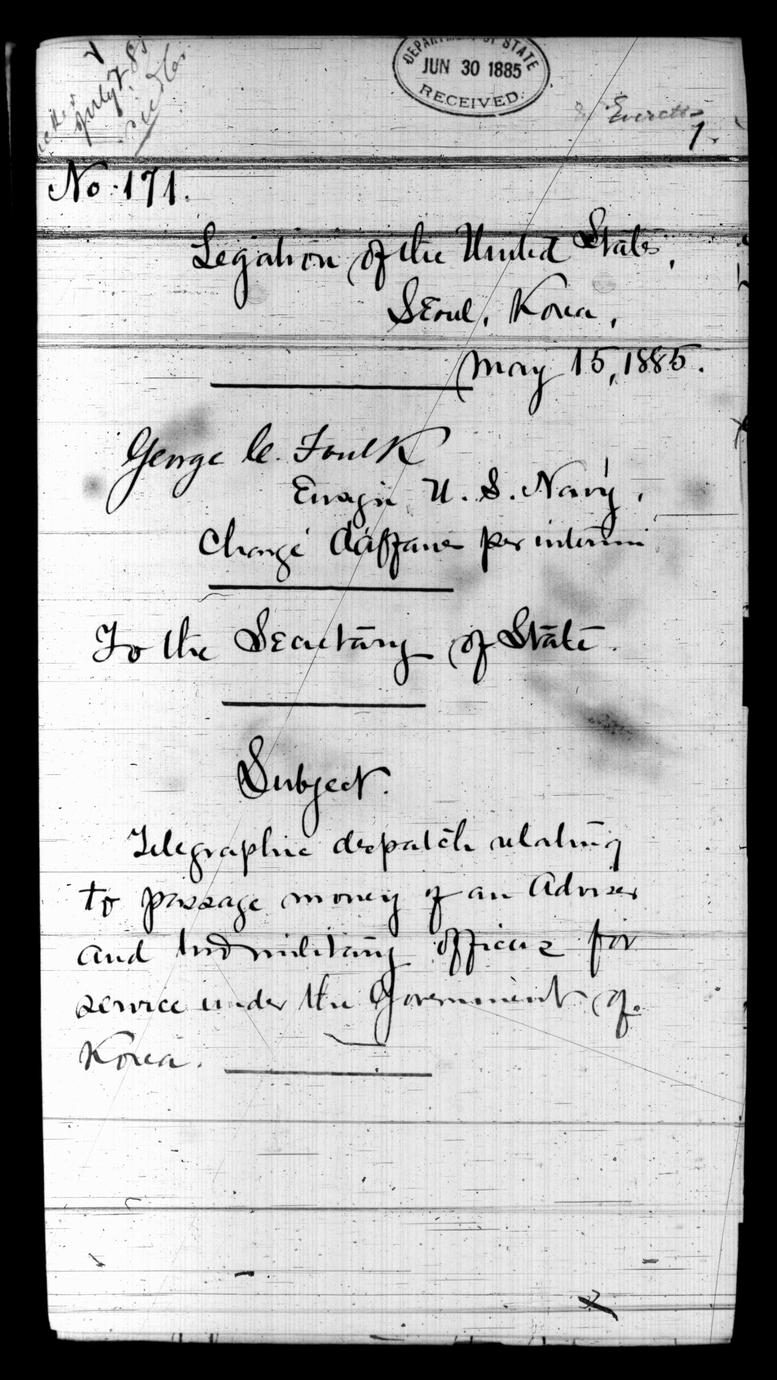 DEPARTMENT OF STATE
JUN 30 1885
RECEIVED.
July 7. 85
Everett
1.
No. 171.
Legation of the United States,
Seoul, Korea,
May 15, 1885.
George C. Foulk
Ensign U. S. Navy,
Chargé d'affaires per interim
To the Secretary of State.
Subject.
Telegraphic despatch relating
to passage money of an Adviser
and military officers for
service under the Government of
Korea.